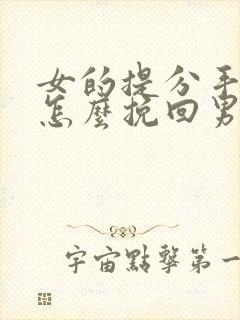 女的提分手
怎麼挽回男
宇宙點擊第一